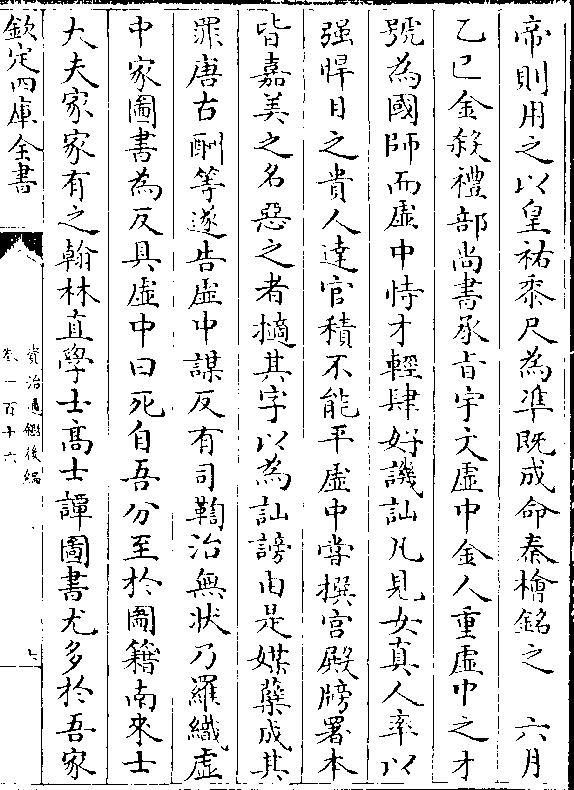 帝則用之以皇祐黍尺為凖既成命秦檜銘之　六月
乙巳金殺禮部尚書承㫖宇文虛中金人重虛中之才
號為國師而虛中恃才輕肆好譏訕凡見女真人率以
强悍目之貴人達官積不能平虛中嘗撰宫殿牓署本
皆嘉美之名惡之者擿其字以為訕謗由是媒蘖成其
罪唐古酬等遂告虛中謀反有司鞫治無状乃羅織虛
中家圖書為反具虛中曰死自吾分至於圖籍南來士
大夫家家有之翰林直學士髙士譚圖書尤多於吾家
欽定四庫全書
資治通鑑後編
卷一百十六
七